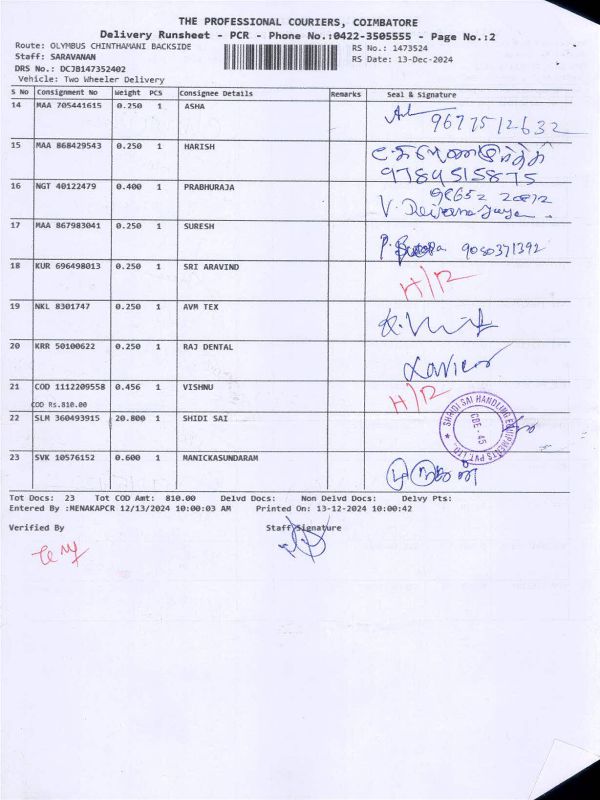 THE PROFESSIONAL COURIERS, COIMBATORE
Delivery Runsheet - PCR - Phone No.:0422-3505555 - Page No.:2
Route: OLYMBUS CHINTHAMANI BACKSIDE RS No.: 1473524
Staff: SARAVANAN RS Date: 13-Dec-2024
DRS No.: DCJB147352402
Vehicle: Two Wheeler Delivery
S No Consignment No Weight PCS Consignee Details Remarks Seal & Signature
14 MAA 705441615 0.250 1 ASHA
9677512632
15 MAA 868429543 0.250 1 HARISH
9789515875
16 NGT 40122479 0.400 1 PRABHURAJA
17 MAA 867983041 0.250 1 SURESH
9080371392
18 KUR 696498013 0.250 1 SRI ARAVIND
H/R
19 NKL 8301747 0.250 1 AVM TEX
20 KRR 50100622 0.250 1 RAJ DENTAL
Xavier
21 COD 1112209558 0.456 1 VISHNU
COD Rs.810.00
H/R
22 SLM 360493915 20.800 1 SHIDI SAI
SHRIDI SAI HANDLING EQUIPMENTS PVT. LTD.
CBE - 45
23 SVK 10576152 0.600 1 MANICKASUNDARAM
Tot Docs: 23 Tot COD Amt: 810.00 Delvd Docs: Non Delvd Docs: Delvy Pts:
Entered By :MENAKAPCR 12/13/2024 10:00:03 AM Printed On: 13-12-2024 10:00:42
Verified By Staff Signature